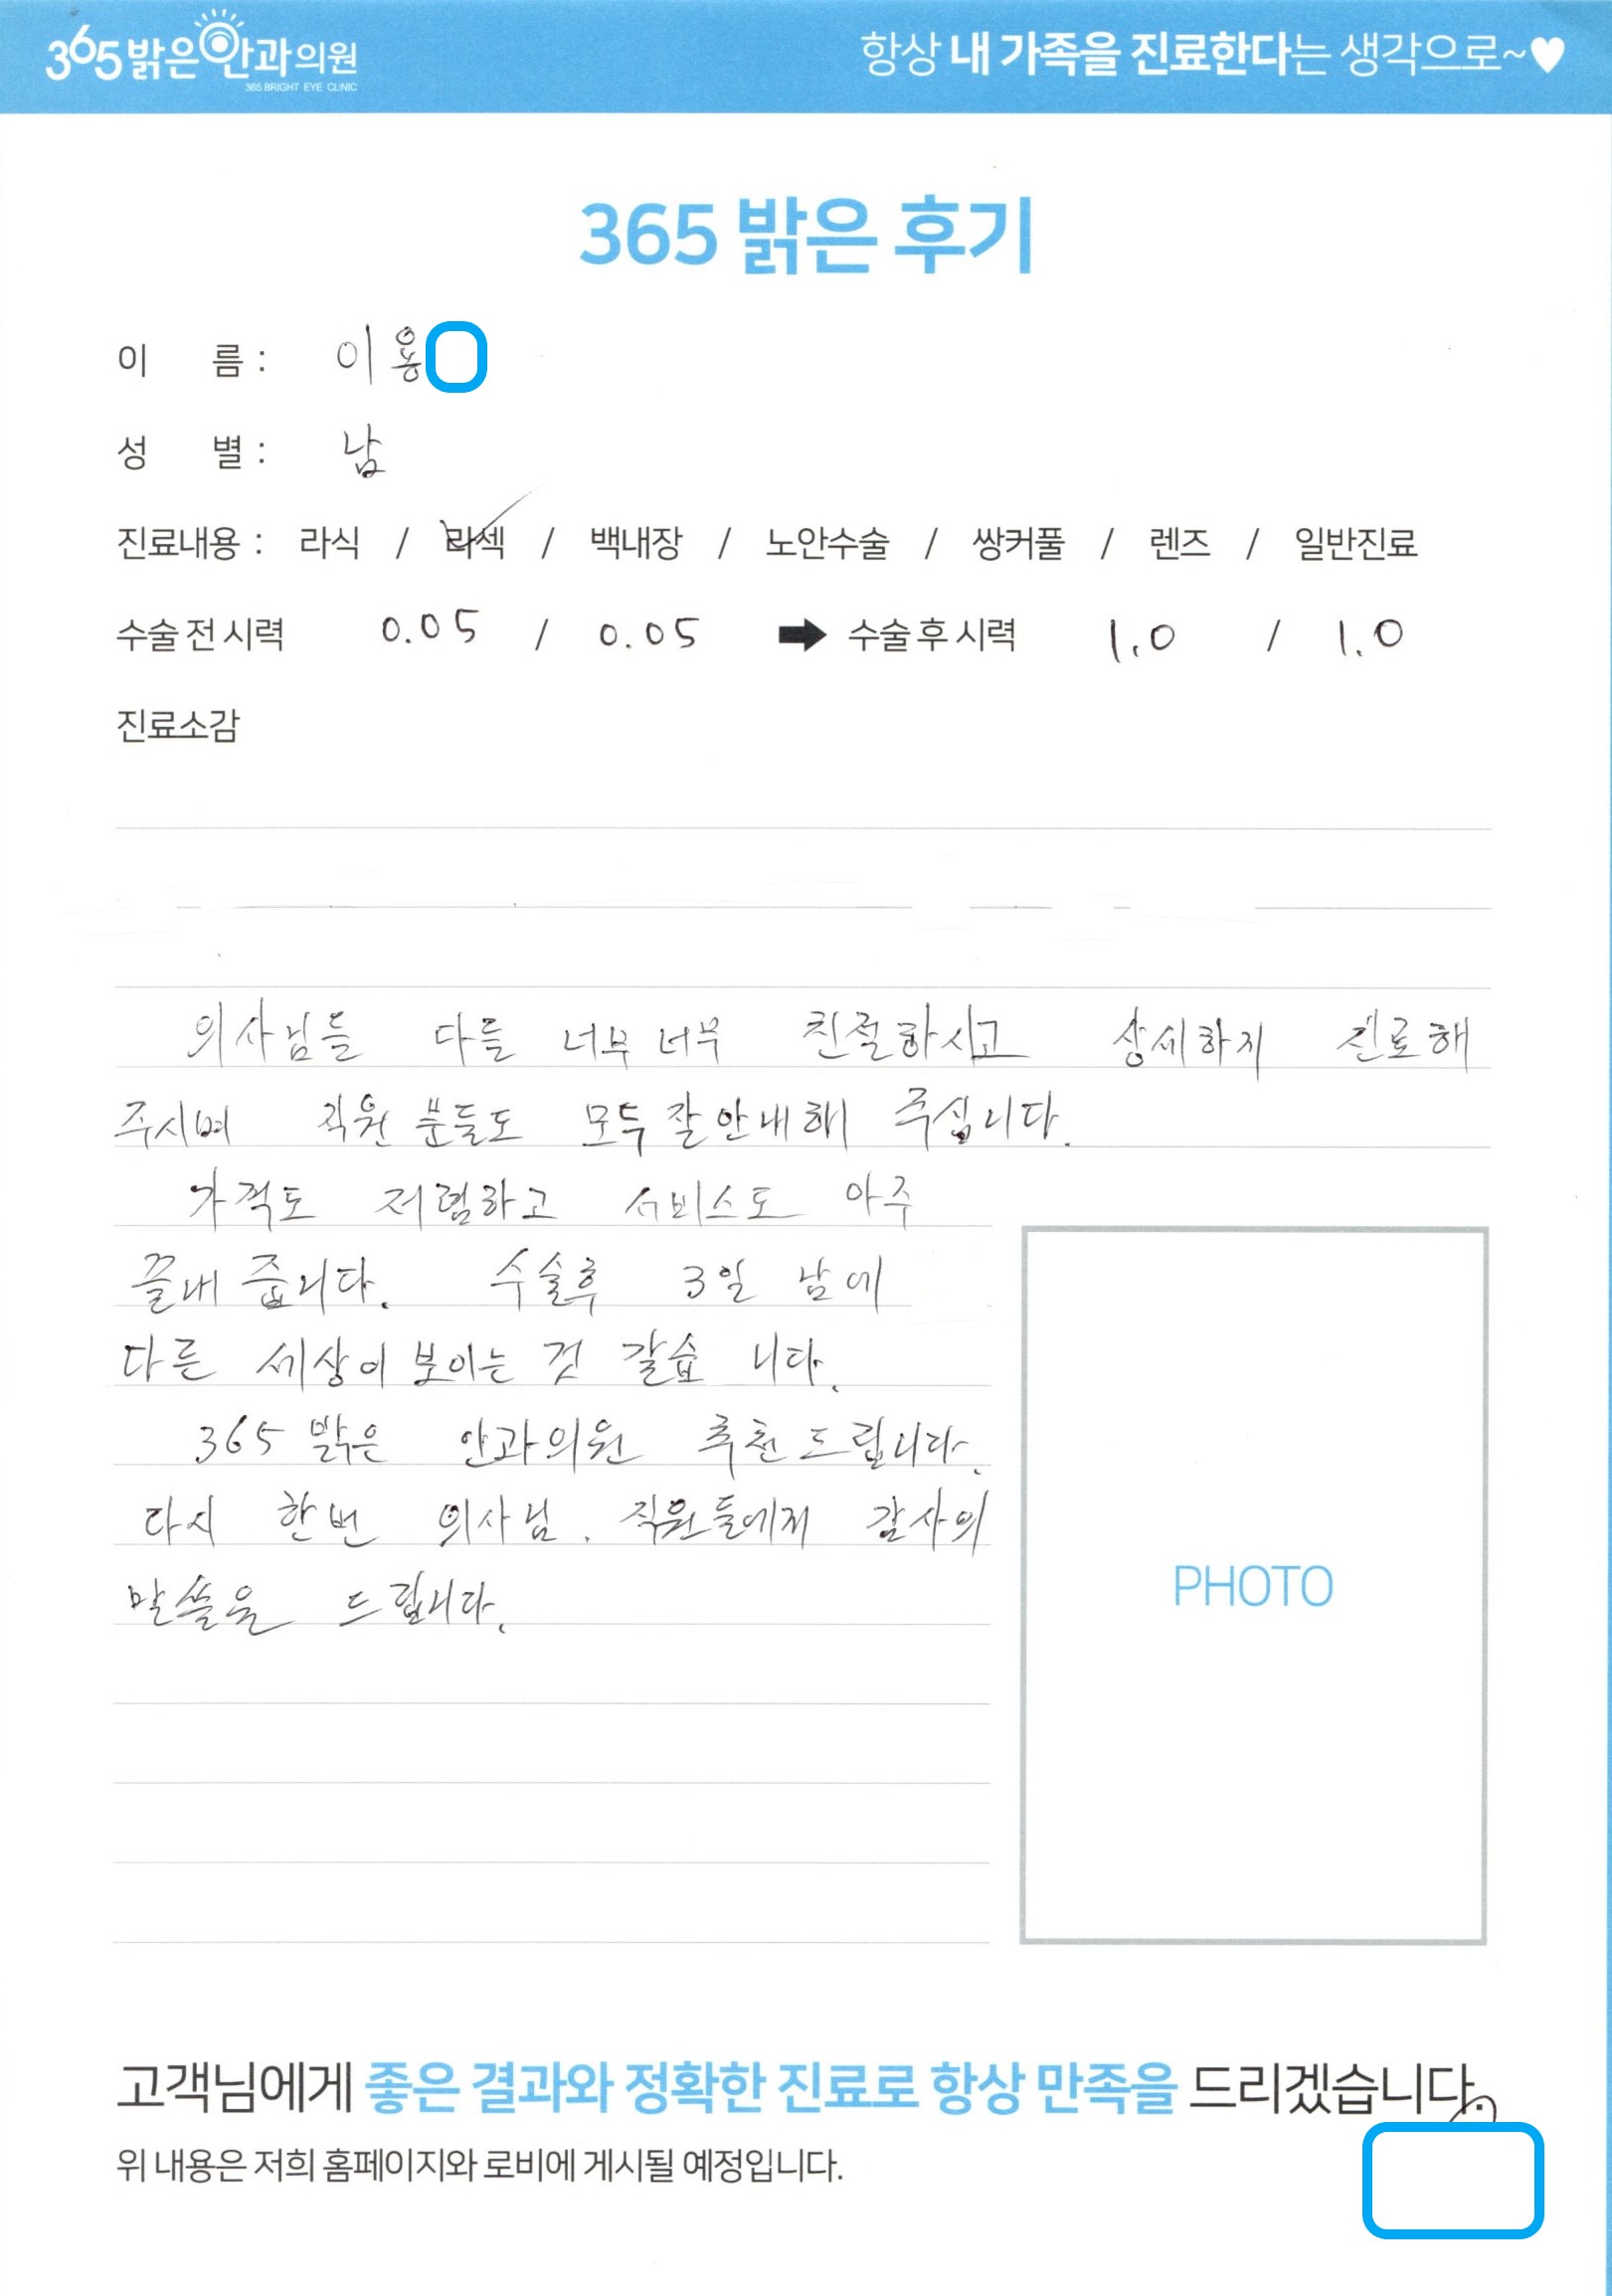 365밝은안과의원
365 BRIGHT EYE CLINIC
항상 내 가족을 진료한다는 생각으로~♥
365 밝은 후기
이 름 : 이용
성 별 : 남
진료내용 : 라식 / 라섹 / 백내장 / 노안수술 / 쌍커풀 / 렌즈 / 일반진료
수술 전 시력 0.05 / 0.05 ➡ 수술 후 시력 1.0 / 1.0
진료소감
의사님들 다들 너무 너무 친절하시고 상세하게 진료해
주시며 직원 분들도 모두 잘 안내해 주십니다.
가격도 저렴하고 서비스도 아주
끝내 줍니다. 수술후 3일 남에
다른 세상이 보이는 것 같습 니다.
365 밝은 안과의원 추천 드립니다.
다시 한번 의사님. 직원들에게 감사의
말씀을 드립니다.
PHOTO
고객님에게 좋은 결과와 정확한 진료로 항상 만족을 드리겠습니다.
위 내용은 저희 홈페이지와 로비에 게시될 예정입니다.